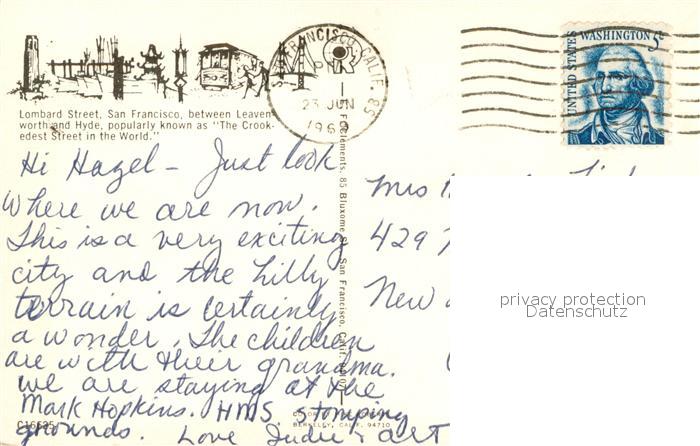 Lombard Street, San Francisco, between Leaven-
worth and Hyde, popularly known as "The Crook-
edest Street in the World."
SAN FRANCISCO, CALIF.
PM
23 JUN
196
WASHINGTON 5¢
UNITED STATES
Hi Hazel – Just look
where we are now.
This is a very exciting
city and the hilly
terrain is certainly
a wonder. The children
are with their grandma.
We are staying at the
Mark Hopkins. HMS stomping
grounds. Love Judie & Art
C16625
BERKELEY, CALIF. 94710
Smith Novelty
85 Bluxome St., San Francisco, Calif.
Mrs
429
New
privacy protection
Datenschutz